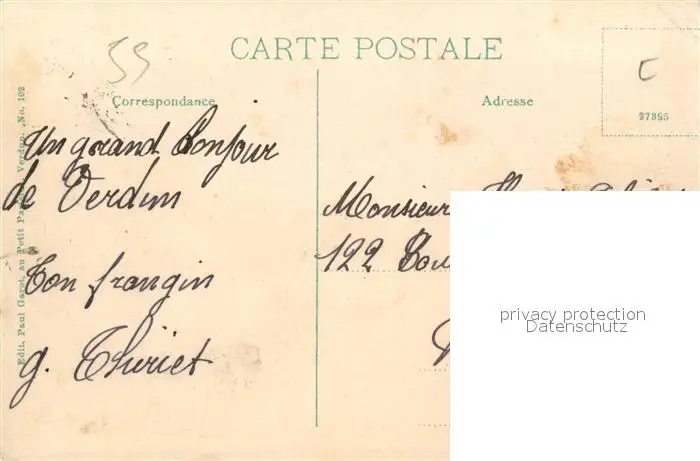 59
CARTE POSTALE
C
Correspondance
Adresse
27395
Un grand bonjour
de Verdun
Ton frangin
g. Thiriet
Monsieur
122
Edit. Paul Garot, au Petit Verdun. No. 102
privacy protection
Datenschutz